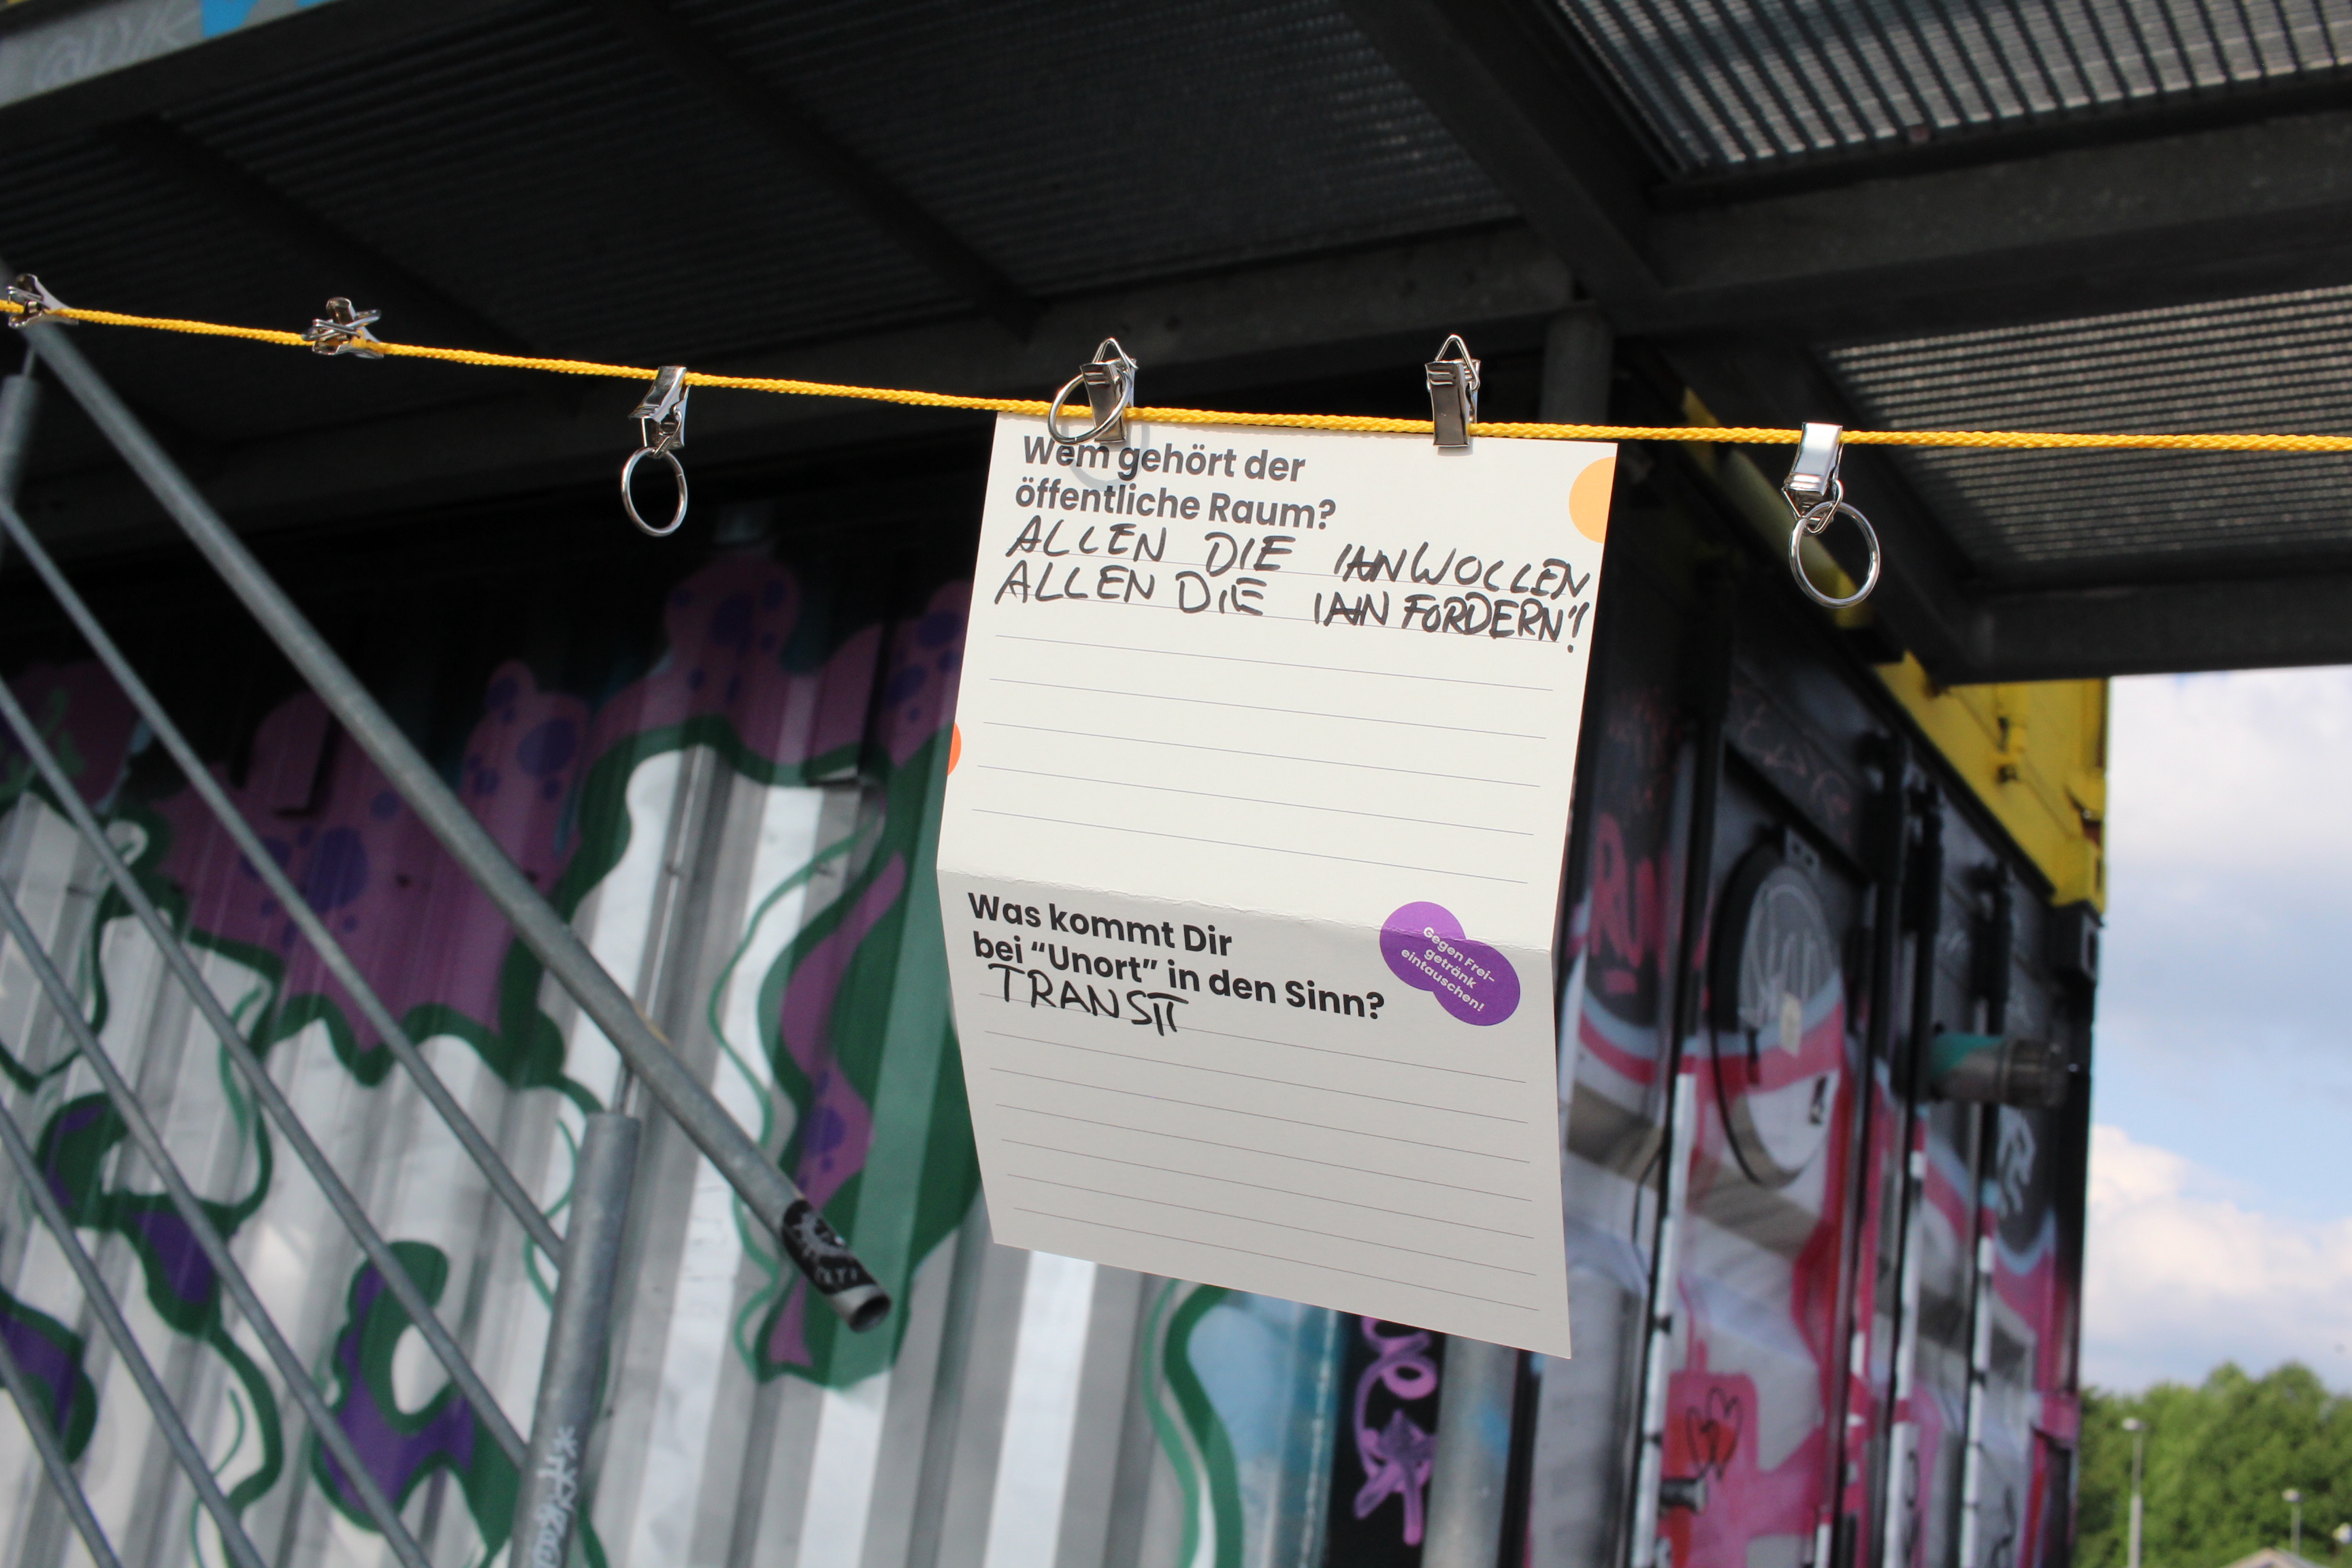 Wem gehört der
öffentliche Raum?
ALLEN DIE IHN WOLLEN
ALLEN DIE IHN FORDERN!
Was kommt Dir
bei “Unort” in den Sinn?
Gegen Frei-
getränk
eintauschen!
TRANSIT